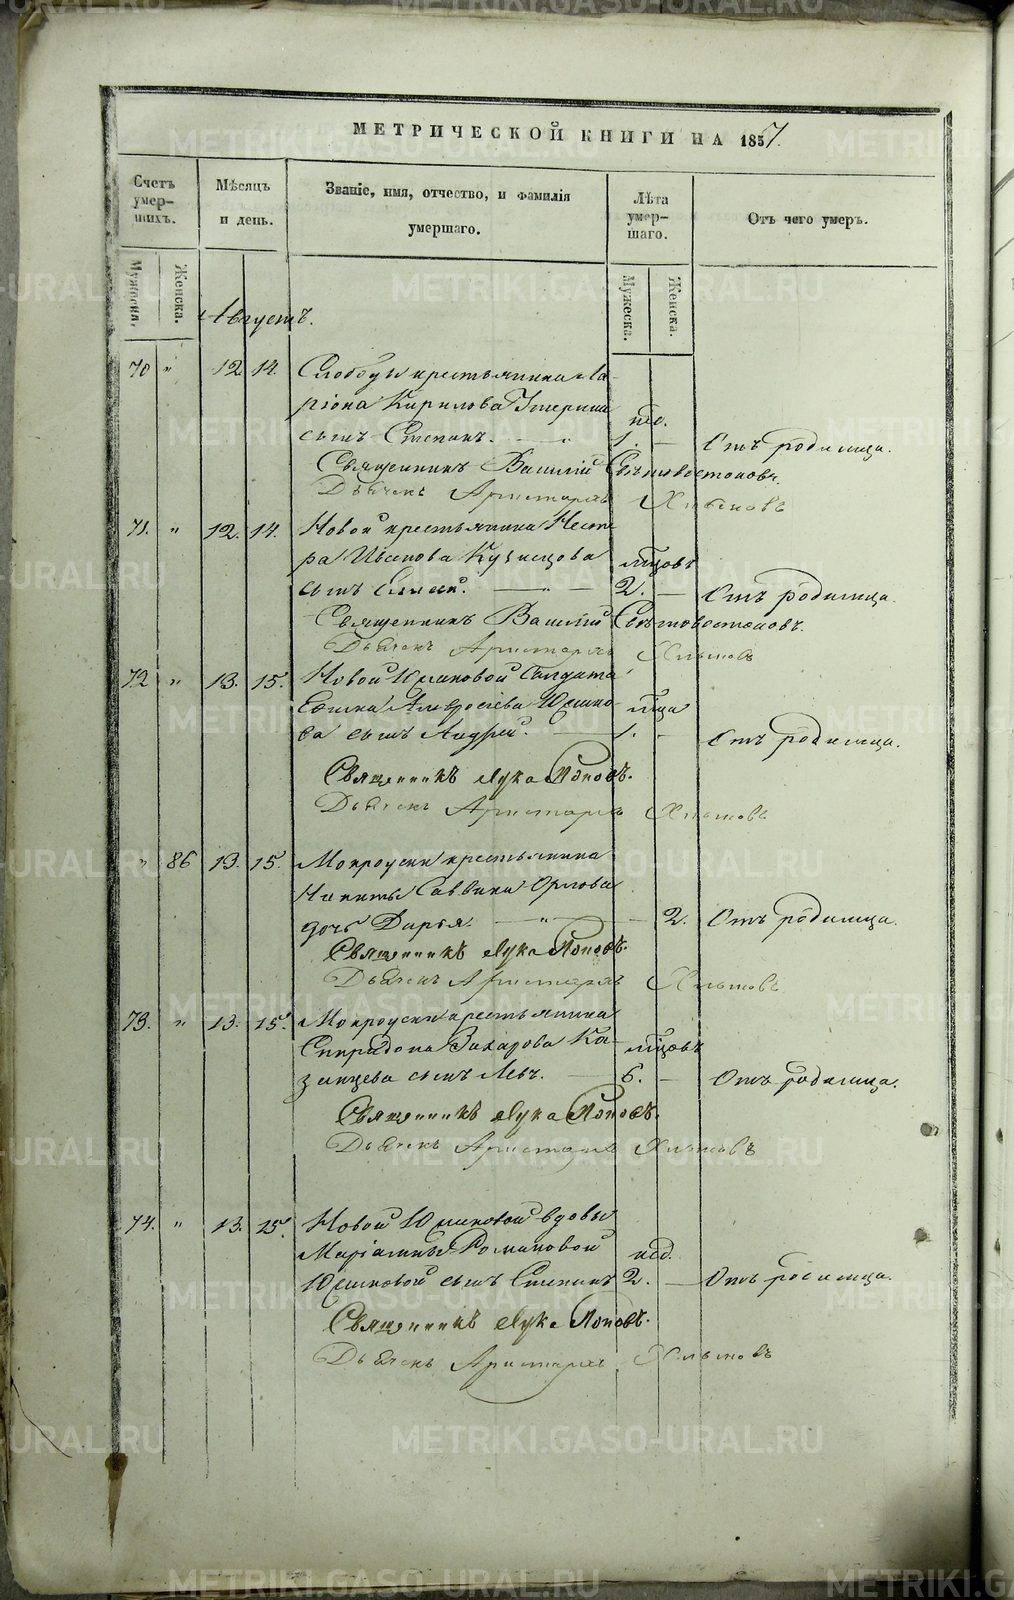 МЕТРИЧЕСКОЙ КНИГИ НА 1857.
Счетъ умер-шихъ.
Мѣсяцъ и день.
Званіе, имя, отчество, и фамилія умершаго.
Лѣта умер-шаго.
Отъ чего умеръ.
Мужеска.
Женска.
Мужеска.
Женска.
Августъ.
70 " 12 14. Слободы крестьянина Ила-
ріона Кирилова нед.
сынъ Степанъ. — " 1. — Отъ родимца.
Священникъ Василій
Дьячекъ Аристархъ Хлыновъ
71. " 12. 14. Новой крестьянина Несто-
ра Иванова Кузнецова мѣсяцовъ
сынъ — " — 2. — Отъ родимца.
Священникъ Василій
Дьячекъ Аристархъ Хлыновъ
72 " 13. 15. Новой Юшковой Солдата
Амвросіева Юшко- мѣсяца
ва сынъ Андрей. — 1. — Отъ родимца.
Священникъ Лука Поповъ.
Дьячекъ Аристархъ Хлыновъ
" 86 13. 15. Мокроуски крестьянина
Никиты Саввина Орлова
дочь Дарья. — " — — 2. Отъ родимца.
Священникъ Лука Поповъ.
Дьячекъ Аристархъ Хлыновъ
73. " 13. 15. Мокроуски крестьянина
Спиридона Захарова Ка- мѣсяцовъ
занцева сынъ Левъ. — 6. — Отъ родимца.
Священникъ Лука Поповъ.
Дьячекъ Аристархъ Хлыновъ
74. " 13. 15. Новой Юшковой вдовы
Маріамны Романовой нед.
Юшковой сынъ Степанъ 2. — Отъ родимца.
Священникъ Лука Поповъ.
Дьячекъ Аристархъ Хлыновъ
METRIKI.GASO-URAL.RU